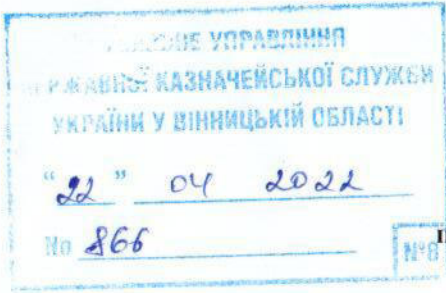 УПРАВЛІННЯ
КАЗНАЧЕЙСЬКОЇ СЛУЖБИ
УКРАЇНИ У ВІННИЦЬКІЙ ОБЛАСТІ
"22" 04 2022
№ 866
№8